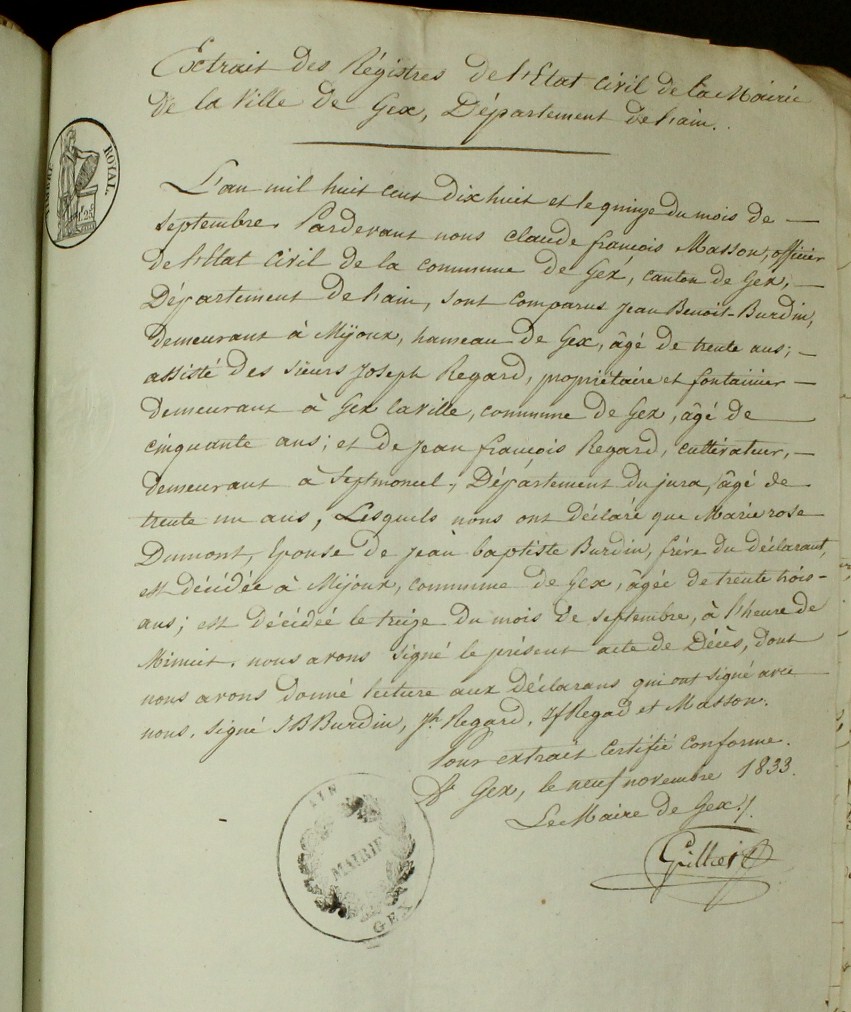 Extrait des Régistres de l'Etat Civil de la Mairie
de la Ville de Gex, Département de l'ain.
TIMBRE ROYAL.
L'an mil huit cent dix huit et le quinze du mois de —
septembre. Pardevant nous claude françois Masson, officier
de l'Etat Civil de la commune de Gex, canton de Gex, —
Département de l'ain, sont comparus Jean Benoit-Burdin,
demeurant à Mijoux, hameau de Gex, âgé de trente ans; —
assisté des sieurs Joseph Regard, propriétaire et fontainier —
demeurant à Gex la ville, commune de Gex, âgé de
cinquante ans; et de jean françois Regard, cultivateur, —
demeurant à Septmoncel, Département du jura, âgé de
trente un ans, Lesquels nous ont déclaré que Marie rose
Dumont, Epouse de jean baptiste Burdin, frère du déclarant,
est décédée à Mijoux, commune de Gex, âgée de trente trois -
ans; est décédeé le treize du mois de septembre, à l'heure de
Minuit. nous avons signé le présent acte de Décès, dont
nous avons donné lecture aux déclarans qui ont signé avec
nous. signé JB Burdin, Jh. Regard, Jf Regad et Masson.
Pour extrait certifié conforme.
Gex, le neuf novembre 1833.
Le Maire de Gex./.
AIN
MAIRIE
GEX